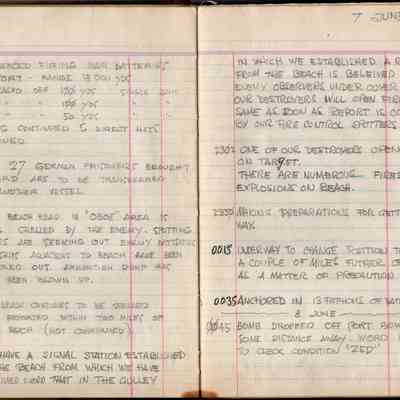 FIRING NEAR BATTERIES
PORT - RANGE 13000 YDS
OFF 150 YDS SINGLE GUN
" " 100 YDS " "
" " 50 YDS " "
CONTINUED 5 DIRECT HITS
27 GERMAN PRISONERS BROUGHT
ARE TO BE TRANSFERRED
ANOTHER VESSEL
BEACH HEAD IN "OBOE" AREA IS
SHELLED BY THE ENEMY. SPOTTING
ARE SEEKING OUT ENEMY POSITIONS
ADJACENT TO BEACH HAVE BEEN
OUT. AMMUNITION DUMP HAS
BEEN BLOWN UP.
BEACH CONTINUES TO BE SHELLED
REPORTED WITHIN TWO MILES OF
BEACH (NOT CONFIRMED)
HAVE A SIGNAL STATION ESTABLISHED
THE BEACH FROM WHICH WE HAVE
WORD THAT IN THE GULLEY
7 JUNE
IN WHICH WE ESTABLISHED A
FROM THE BEACH IS BELEIVED
ENEMY OBSERVERS UNDER COVER
OUR DESTROYERS WILL OPEN FIRE
SAME AS SOON AS REPORT IS
BY OUR FIRE CONTROL SPOTTERS
2302 ONE OF OUR DESTROYERS
ON TARGET.
THERE ARE NUMEROUS FIRES
EXPLOSIONS ON BEACH.
2330 MAKING PREPARATIONS FOR
WAY.
0015 UNDERWAY TO CHANGE POSITION
A COUPLE OF MILES FUTHER
AS A MATTER OF PRECAUTION
0035 ANCHORED IN 13 FATHOMS OF
8 JUNE
0045 BOMB DROPPED OFF PORT BOW
SOME DISTANCE AWAY. WORD
TO CHECK CONDITION "ZED"